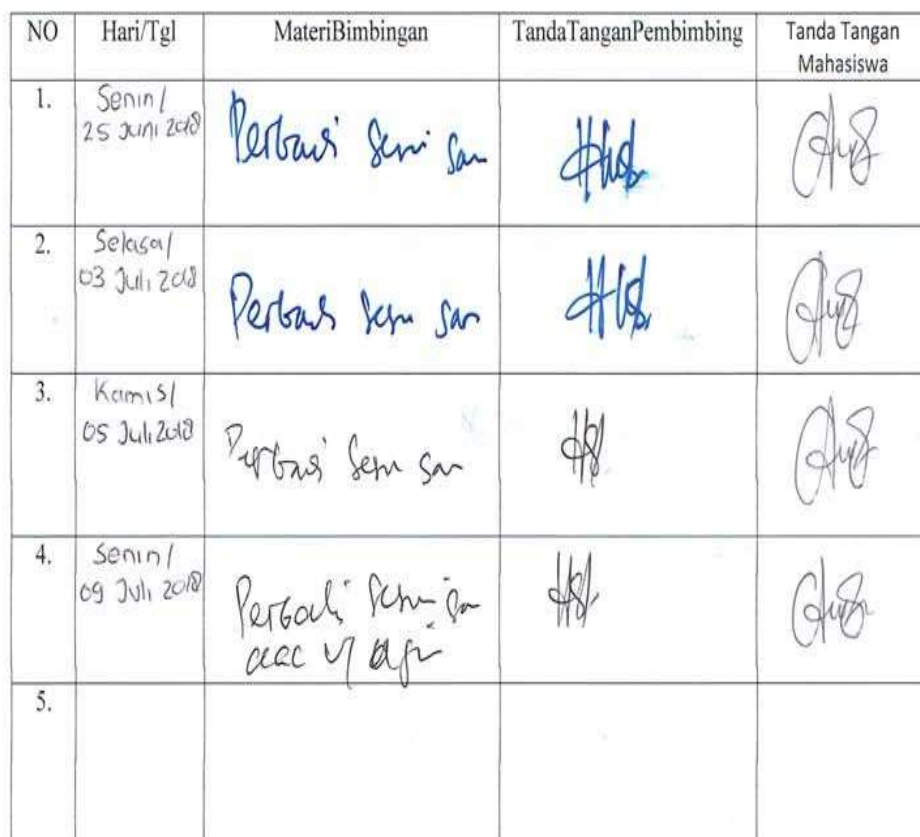 NO Hari/Tgl MateriBimbingan TandaTanganPembimbing Tanda Tangan
Mahasiswa
1. Senin/
25 Juni 2018
Perbaiki sesuai saran
2. Selasa/
03 Juli 2018
Perbaiki sesuai saran
3. Kamis/
05 Juli 2018
Perbaiki sesuai saran
4. Senin/
09 Juli 2018
Perbaiki sesuai saran
acc
5.